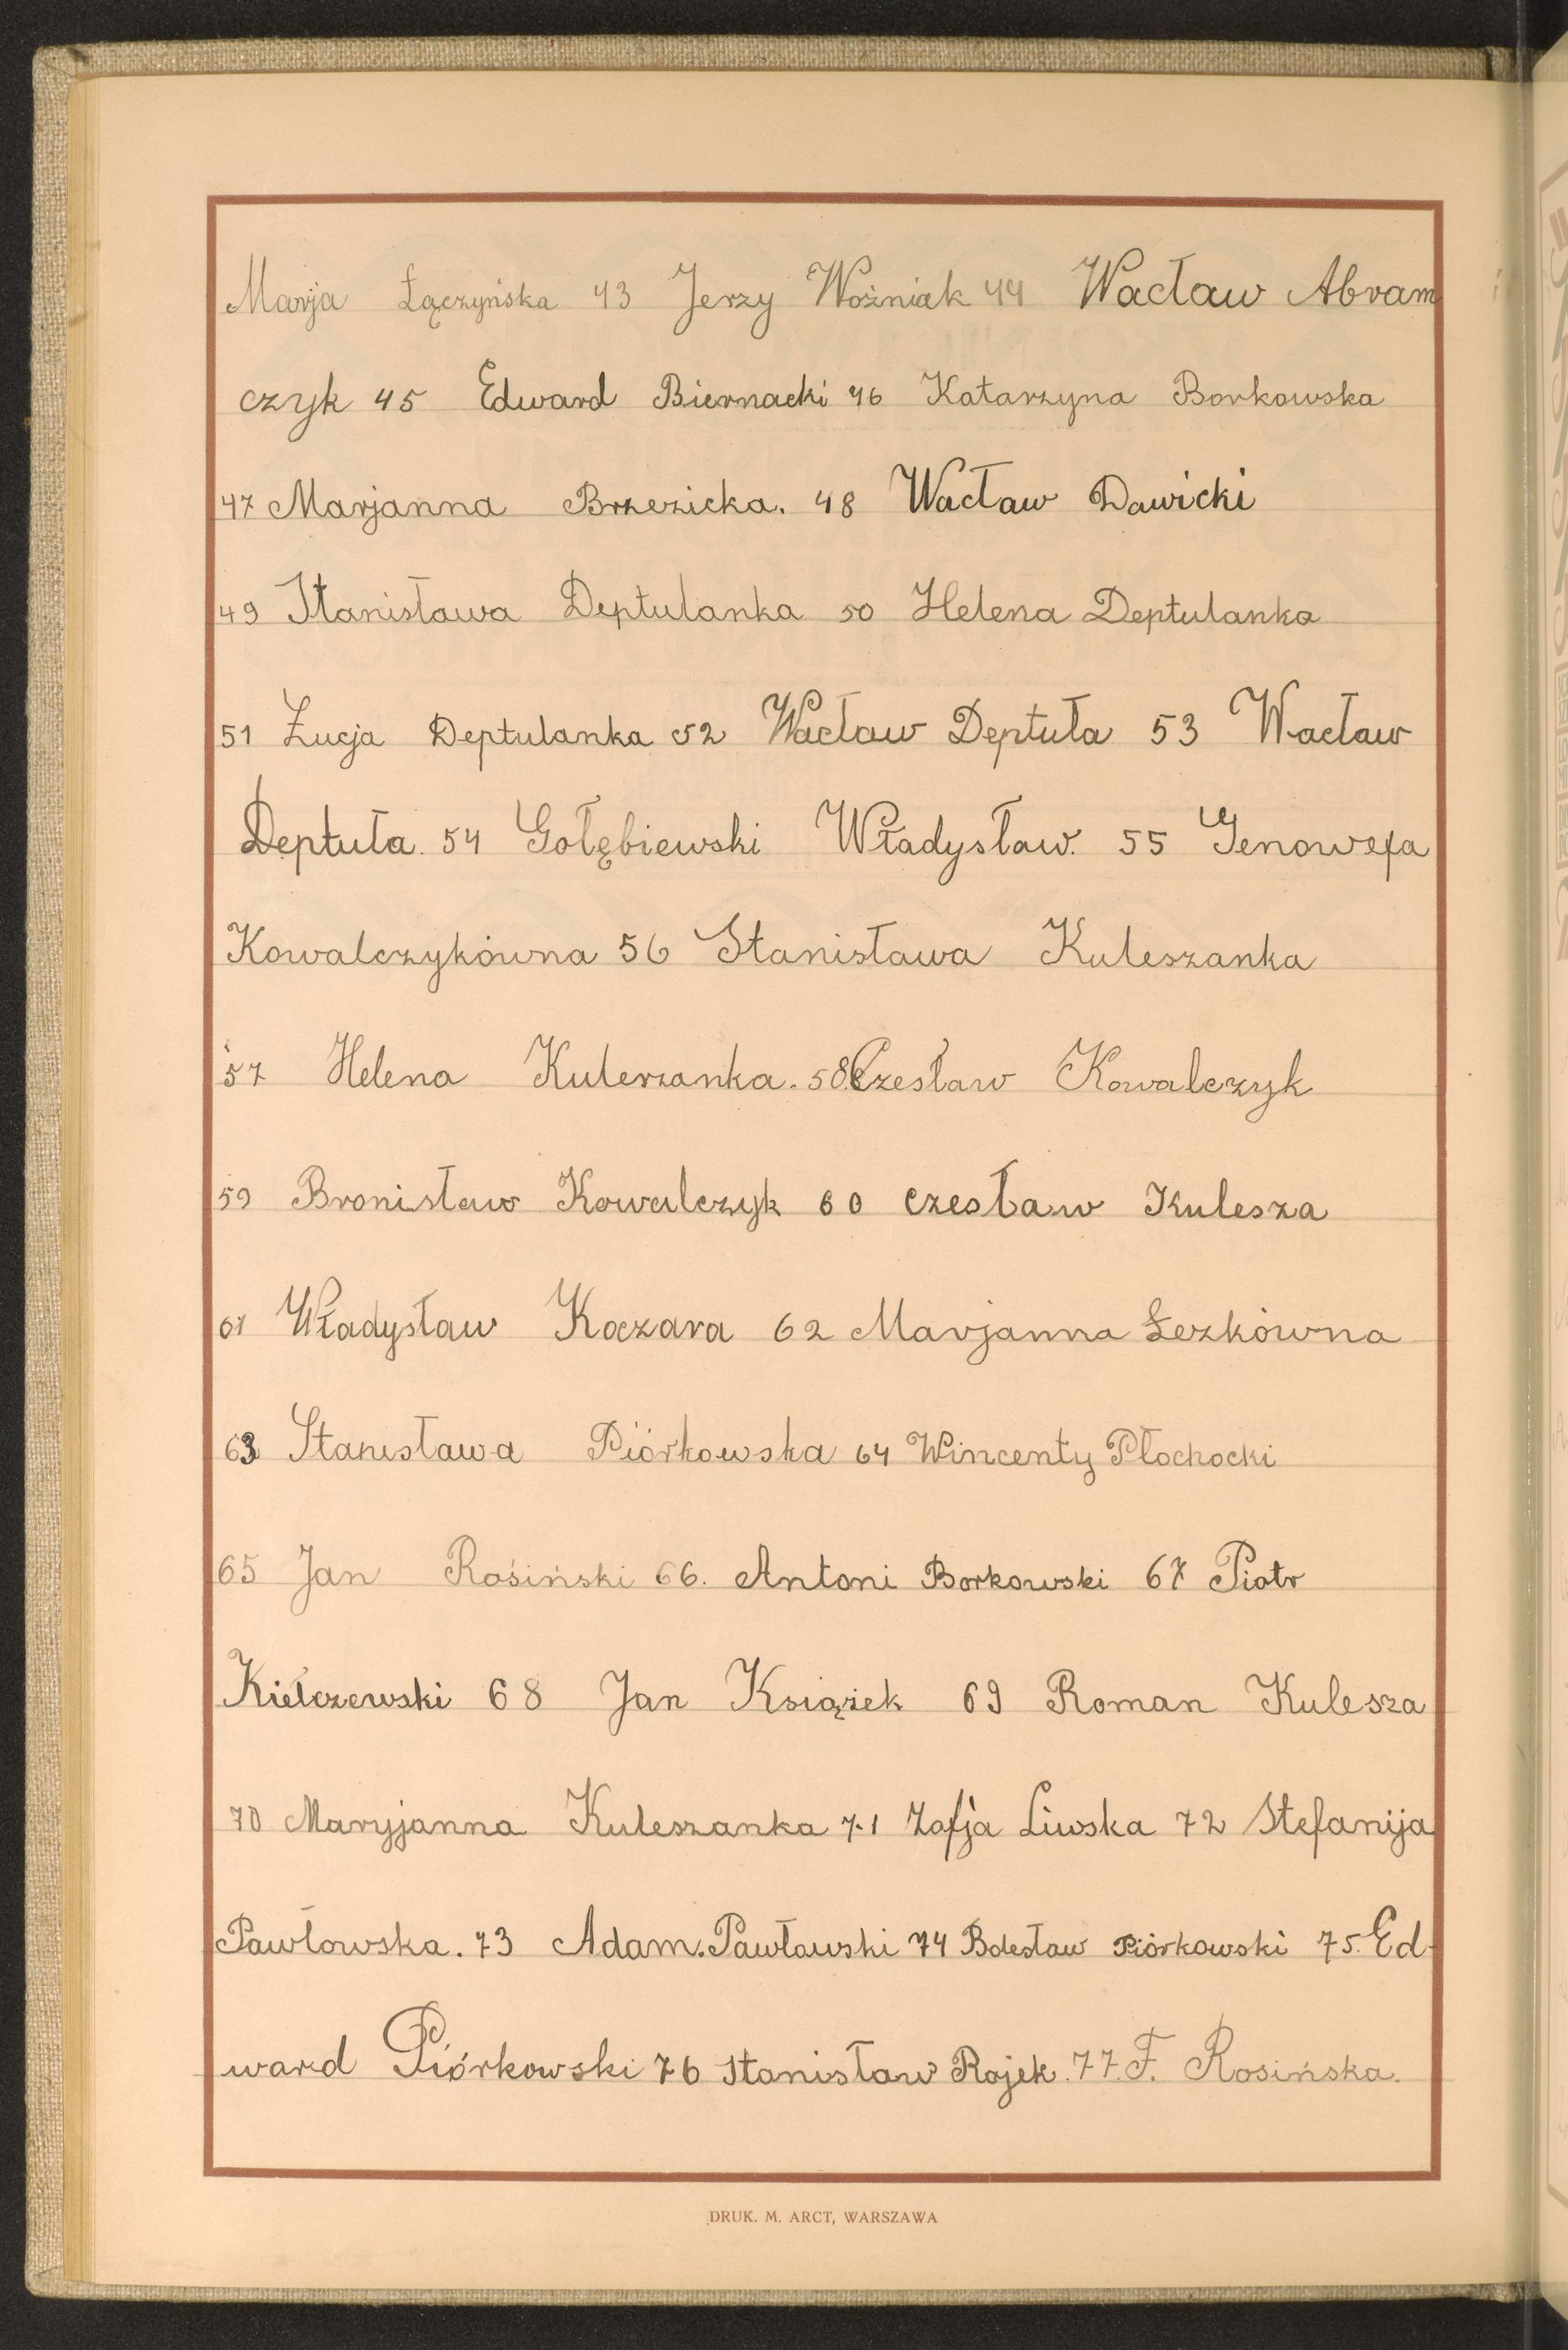 Marja Łączyńska 43 Jerzy Woźniak 44 Wacław Abram
czyk 45 Edward Biernacki 46 Katarzyna Borkowska
47 Marjanna Brzezicka. 48 Wacław Dawicki
49 Stanisława Deptulanka 50 Helena Deptulanka
51 Łucja Deptulanka 52 Wacław Deptuła 53 Wacław
Deptuła. 54 Gołębiewski Władysław. 55 Genowefa
Kowalczykówna 56 Stanisława Kuleszanka
57 Helena Kuleszanka. 58 Czesław Kowalczyk
59 Bronisław Kowalczyk 60 Czesław Kulesza
61 Władysław Koczara 62 Marjanna Łezkówna
63 Stanisława Piórkowska 64 Wincenty Płochocki
65 Jan Rosiński 66. Antoni Borkowski 67 Piotr
Kiełczewski 68 Jan Książek 69 Roman Kulesza
70 Maryjanna Kuleszanka 71 Zofja Liwska 72 Stefanija
Pawłowska. 73 Adam. Pawłowski 74 Bolesław Piórkowski 75. Ed-
ward Piórkowski 76 Stanisław Rojek. 77. F. Rosińska.
DRUK. M. ARCT, WARSZAWA